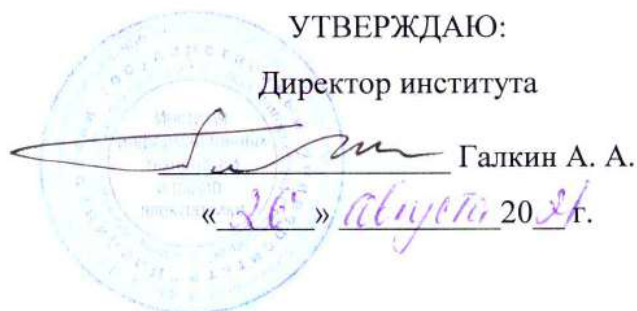 УТВЕРЖДАЮ:
Директор института
Галкин А. А.
«26» августа 2021 г.